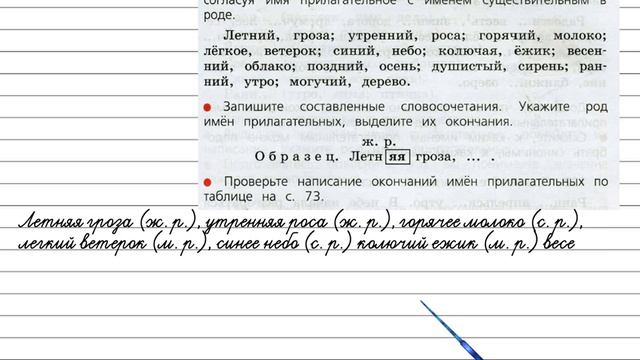 согласуя имя прилагательное с именем существительным в
роде.
Летний, гроза; утренний, роса; горячий, молоко;
лёгкое, ветерок; синий, небо; колючая, ёжик; весен-
ний, облако; поздний, осень; душистый, сирень; ран-
ний, утро; могучий, дерево.
● Запишите составленные словосочетания. Укажите род
имён прилагательных, выделите их окончания.
ж. р.
Образец. Летняя гроза, ... .
● Проверьте написание окончаний имён прилагательных по
таблице на с. 73.
Летняя гроза (ж. р.), утренняя роса (ж. р.), горячее молоко (с. р.),
легкий ветерок (м. р.), синее небо (с. р.) колючий ежик (м. р.) весе